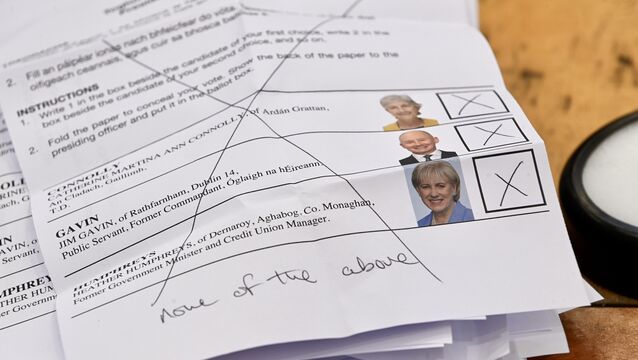 2. Fill an páipéar ionas nach bhfeicfear do vóta.
oifigeach ceannais, agus cuir sa bhosca
INSTRUCTIONS
1. Write 1 in the box beside the candidate of your first choice, write 2 in the
box beside the candidate of your second choice, and so on.
2. Fold the paper to conceal your vote. Show the back of the paper to the
presiding officer and put it in the ballot box.
CONNOLLY
CATHERINE MARTINA ANN CONNOLLY, of Ardán Grattan,
An Cladach, Gaillimh.
T.D.
GAVIN
JIM GAVIN, of Rathfarnham, Dublin 14,
Public Servant, Former Commandant, Óglaigh na hÉireann
HUMPHREYS
HEATHER HUMPHREYS, of Dernaroy, Aghabog, Co. Monaghan,
Former Government Minister and Credit Union Manager.
none of the above
GAVIN
JIM GAVIN,
Public Servant,
HUMPHREYS
HEATHER HUMP